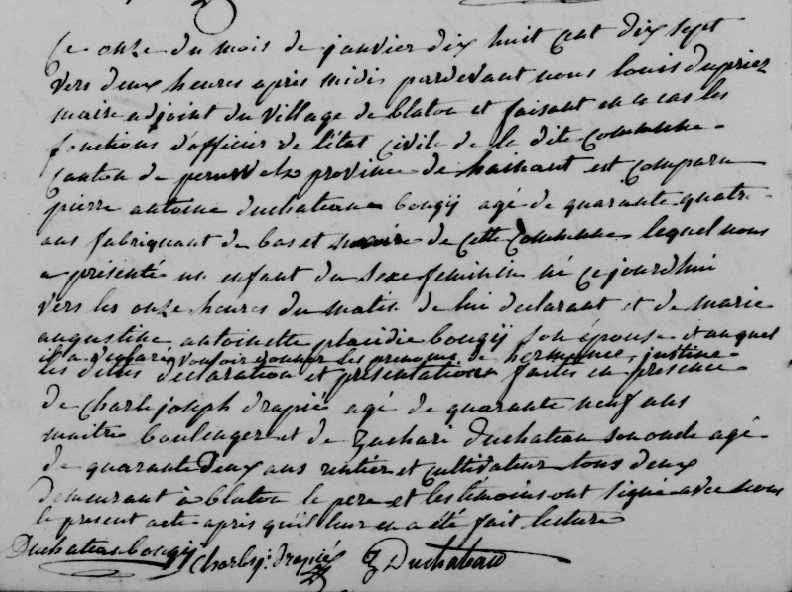 Ce onze du mois de janvier dix huit cent dix sept
vers deux heures après midis pardevant nous louis dupriez
maire adjoint du village de blaton et faisant en ce cas les
fonctions d'officier de l'état civile de la dite commune
Canton de peruwelz province de hainaut est comparu
pierre antoine duchateau bougij agé de quarante quatre
ans fabriquant de bas et maire de cette commune lequel nous
a présenté un enfant du sexe feminin né ce jourdhui
vers les onze heures du matin de lui declarant et de marie
augustine antoinette placidie bougij son épouse et auquel
il a déclaré vouloir donner les prenoms de hermance, justine
les dittes declaration et présentation faites en presence
de Charle joseph drapié agé de quarante neuf ans
maitre boulenger et de Zachari duchateau son oncle agé
de quarante deux ans rentier et cultivateur tous deux
demeurant à blaton le pere et les témoins ont signé avec nous
le present acte après qu'il leur en a été fait lecture
Duchateau bougij Charles j: drapié Z Duchateau